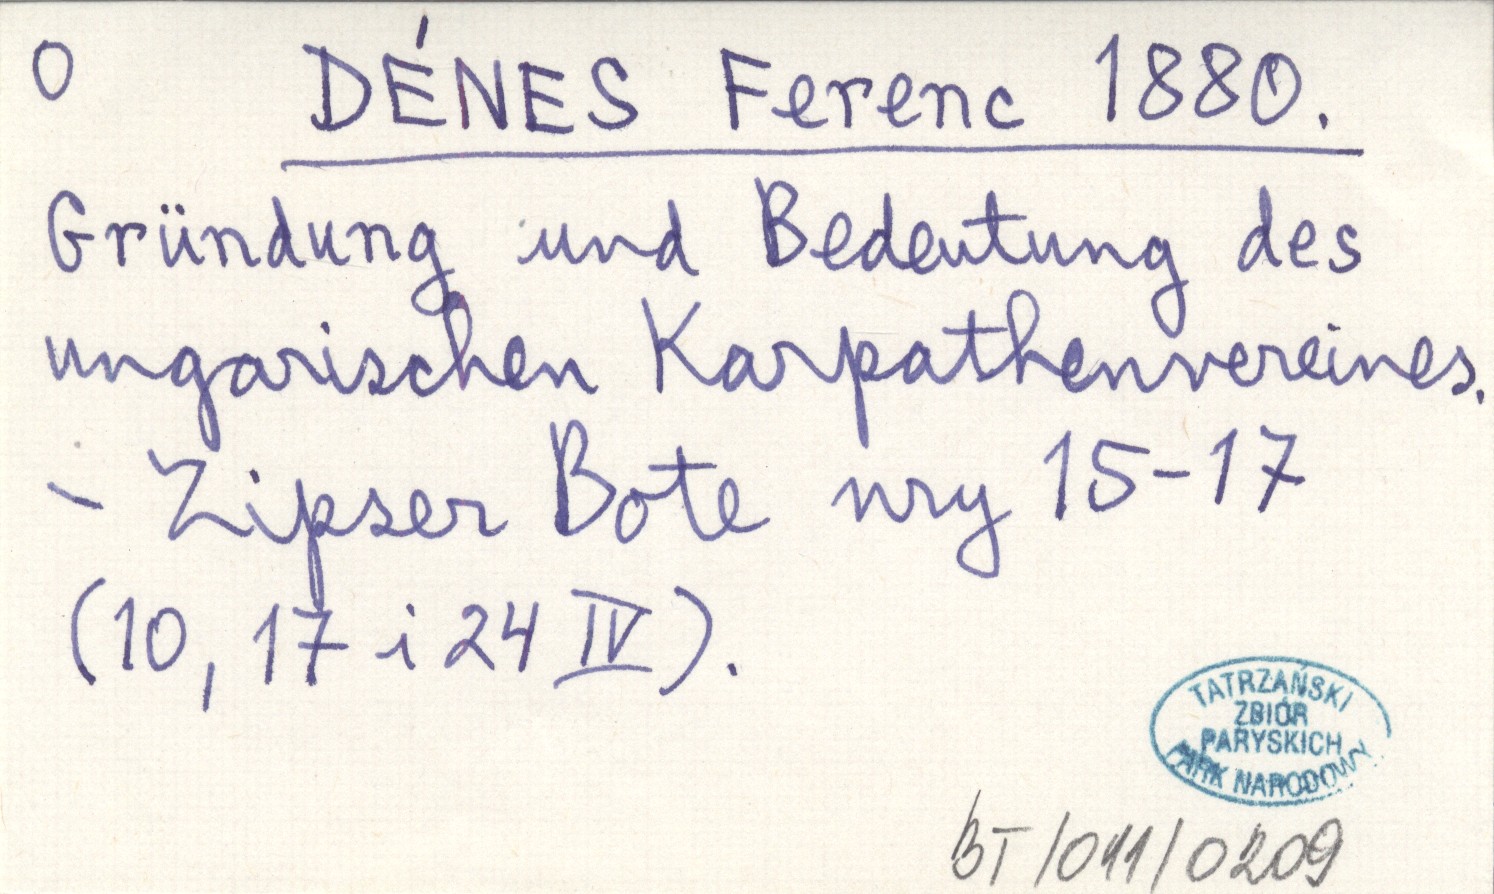 O DÉNES Ferenc 1880.
Gründung und Bedeutung des
ungarischen Karpathenvereines.
- Zipser Bote nry 15-17
(10, 17 i 24 IV).
TATRZAŃSKI
ZBIÓR
PARYSKICH
PARK NARODOWY
BT/011/0209